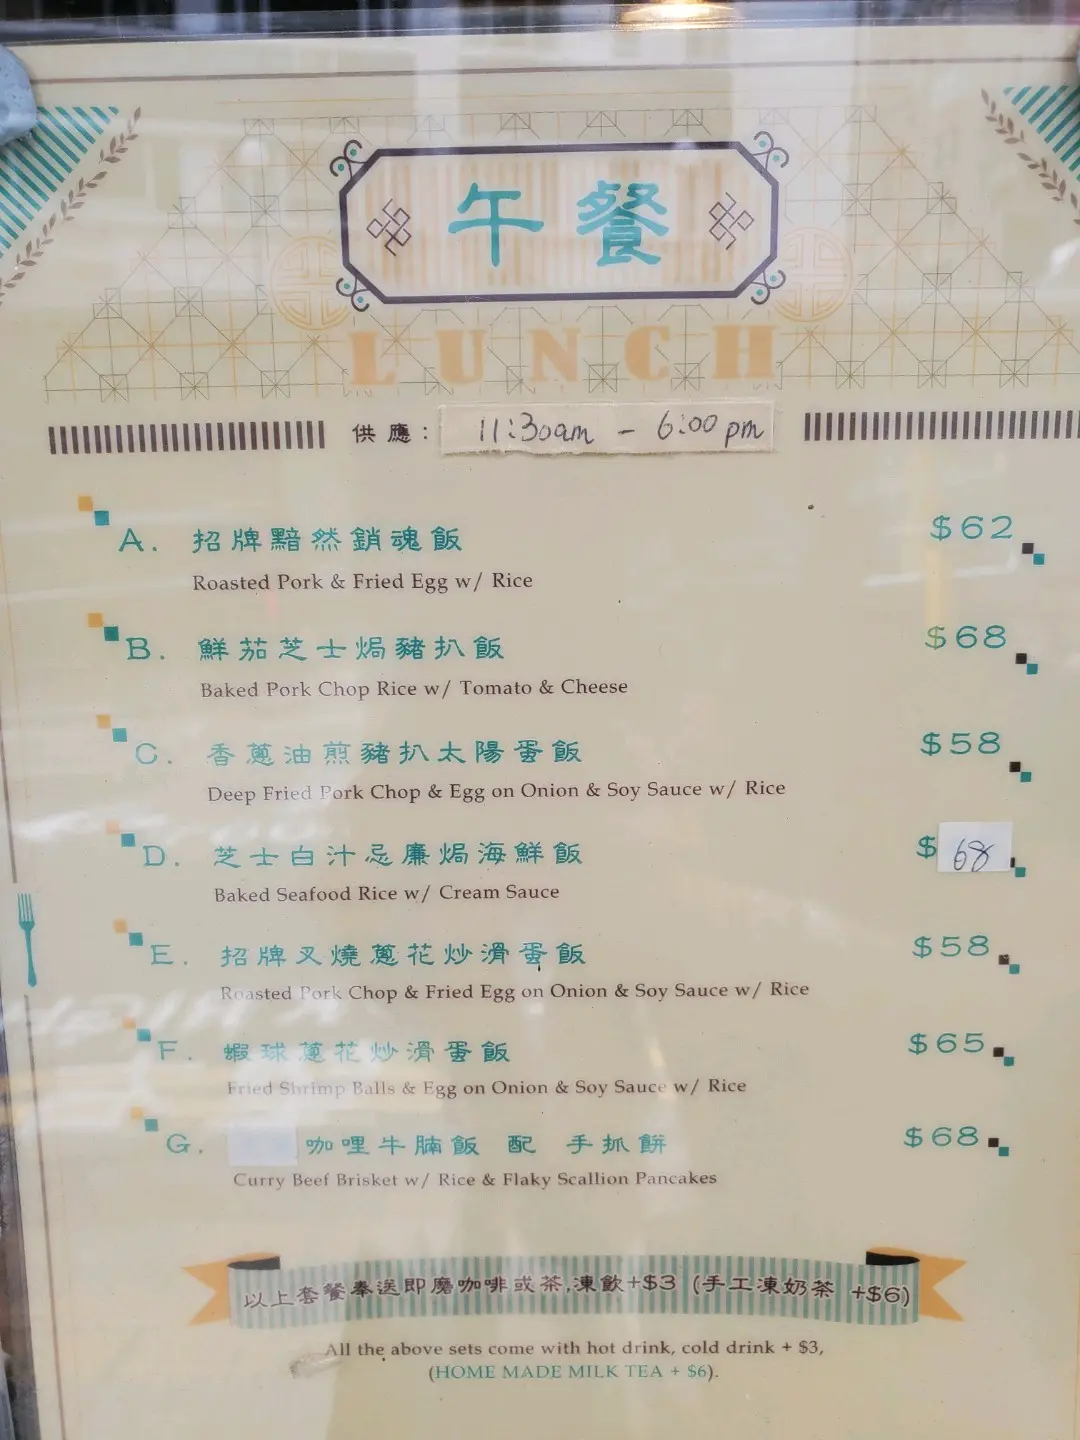 午餐
LUNCH
供應: 11:30am - 6:00 pm
A. 招牌黯然銷魂飯 $62
Roasted Pork & Fried Egg w/ Rice
B. 鮮茄芝士焗豬扒飯 $68
Baked Pork Chop Rice w/ Tomato & Cheese
C. 香蔥油煎豬扒太陽蛋飯 $58
Deep Fried Pork Chop & Egg on Onion & Soy Sauce w/ Rice
D. 芝士白汁忌廉焗海鮮飯 $68
Baked Seafood Rice w/ Cream Sauce
E. 招牌叉燒蔥花炒滑蛋飯 $58
Roasted Pork Chop & Fried Egg on Onion & Soy Sauce w/ Rice
F. 蝦球蔥花炒滑蛋飯 $65
Fried Shrimp Balls & Egg on Onion & Soy Sauce w/ Rice
G. 咖哩牛腩飯 配 手抓餅 $68
Curry Beef Brisket w/ Rice & Flaky Scallion Pancakes
以上套餐奉送即磨咖啡或茶,凍飲+$3 (手工凍奶茶 +$6)
All the above sets come with hot drink, cold drink + $3,
(HOME MADE MILK TEA + $6).